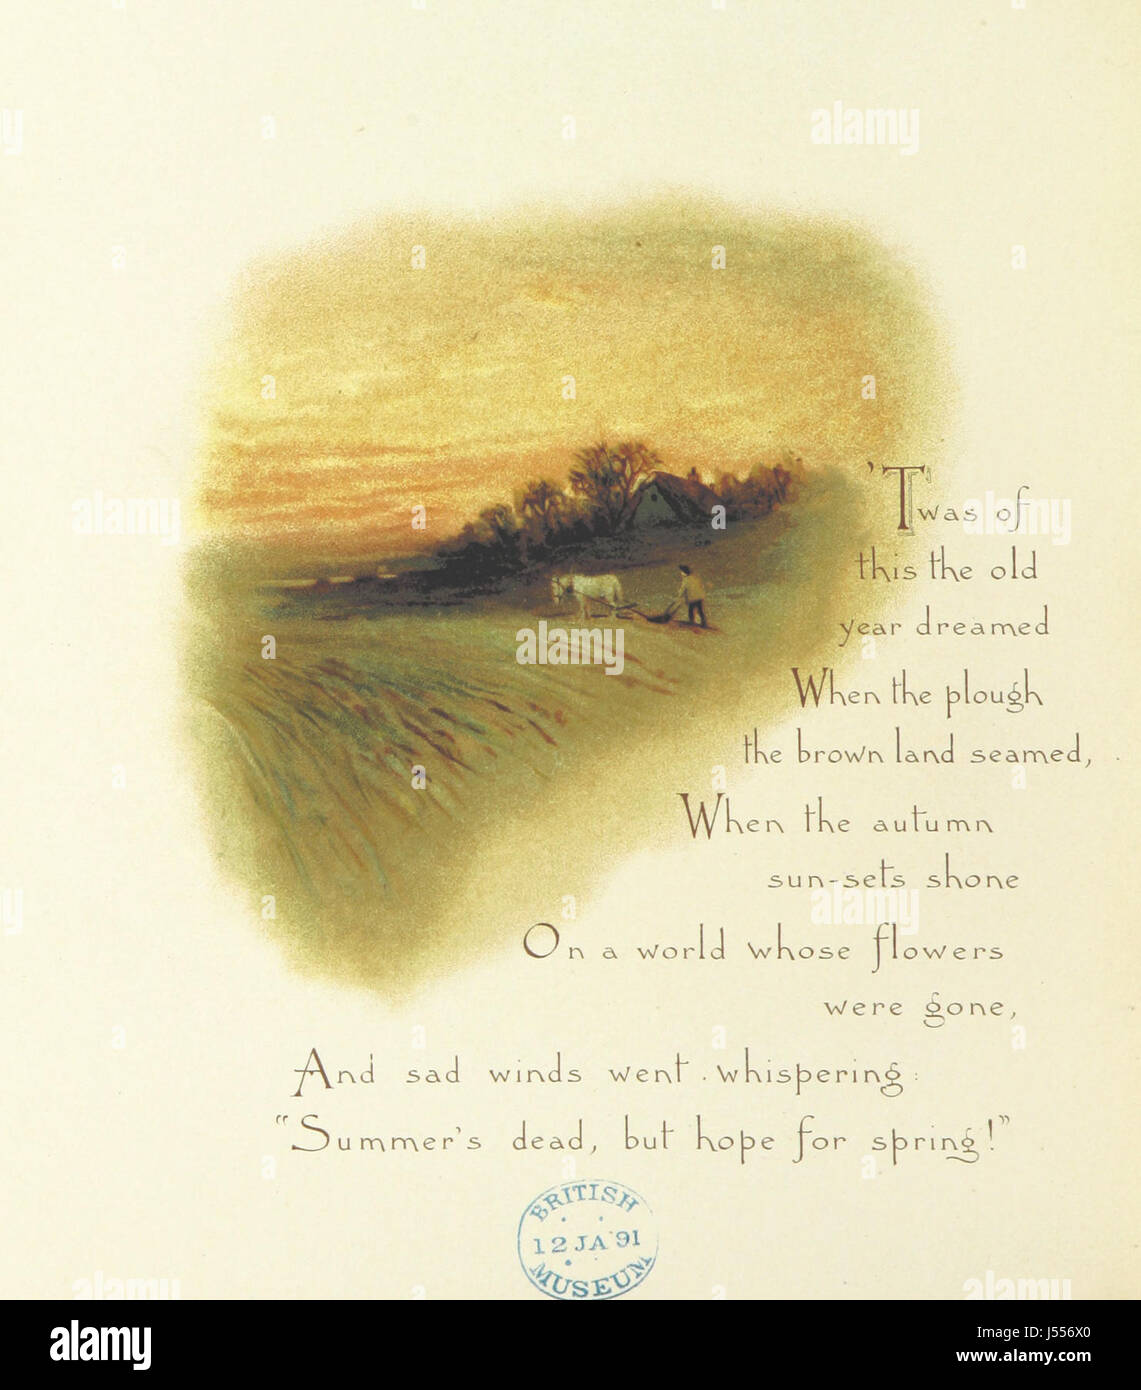 'Twas of
this the old
year dreamed
When the plough
the brown land seamed,
When the autumn
sun-sets shone
On a world whose flowers
were gone,
And sad winds went whispering:
"Summer's dead, but hope for spring!"
BRITISH
12 JA 91
MUSEUM
alamy
a
alamy
Image ID: J556X0
www.alamy.com